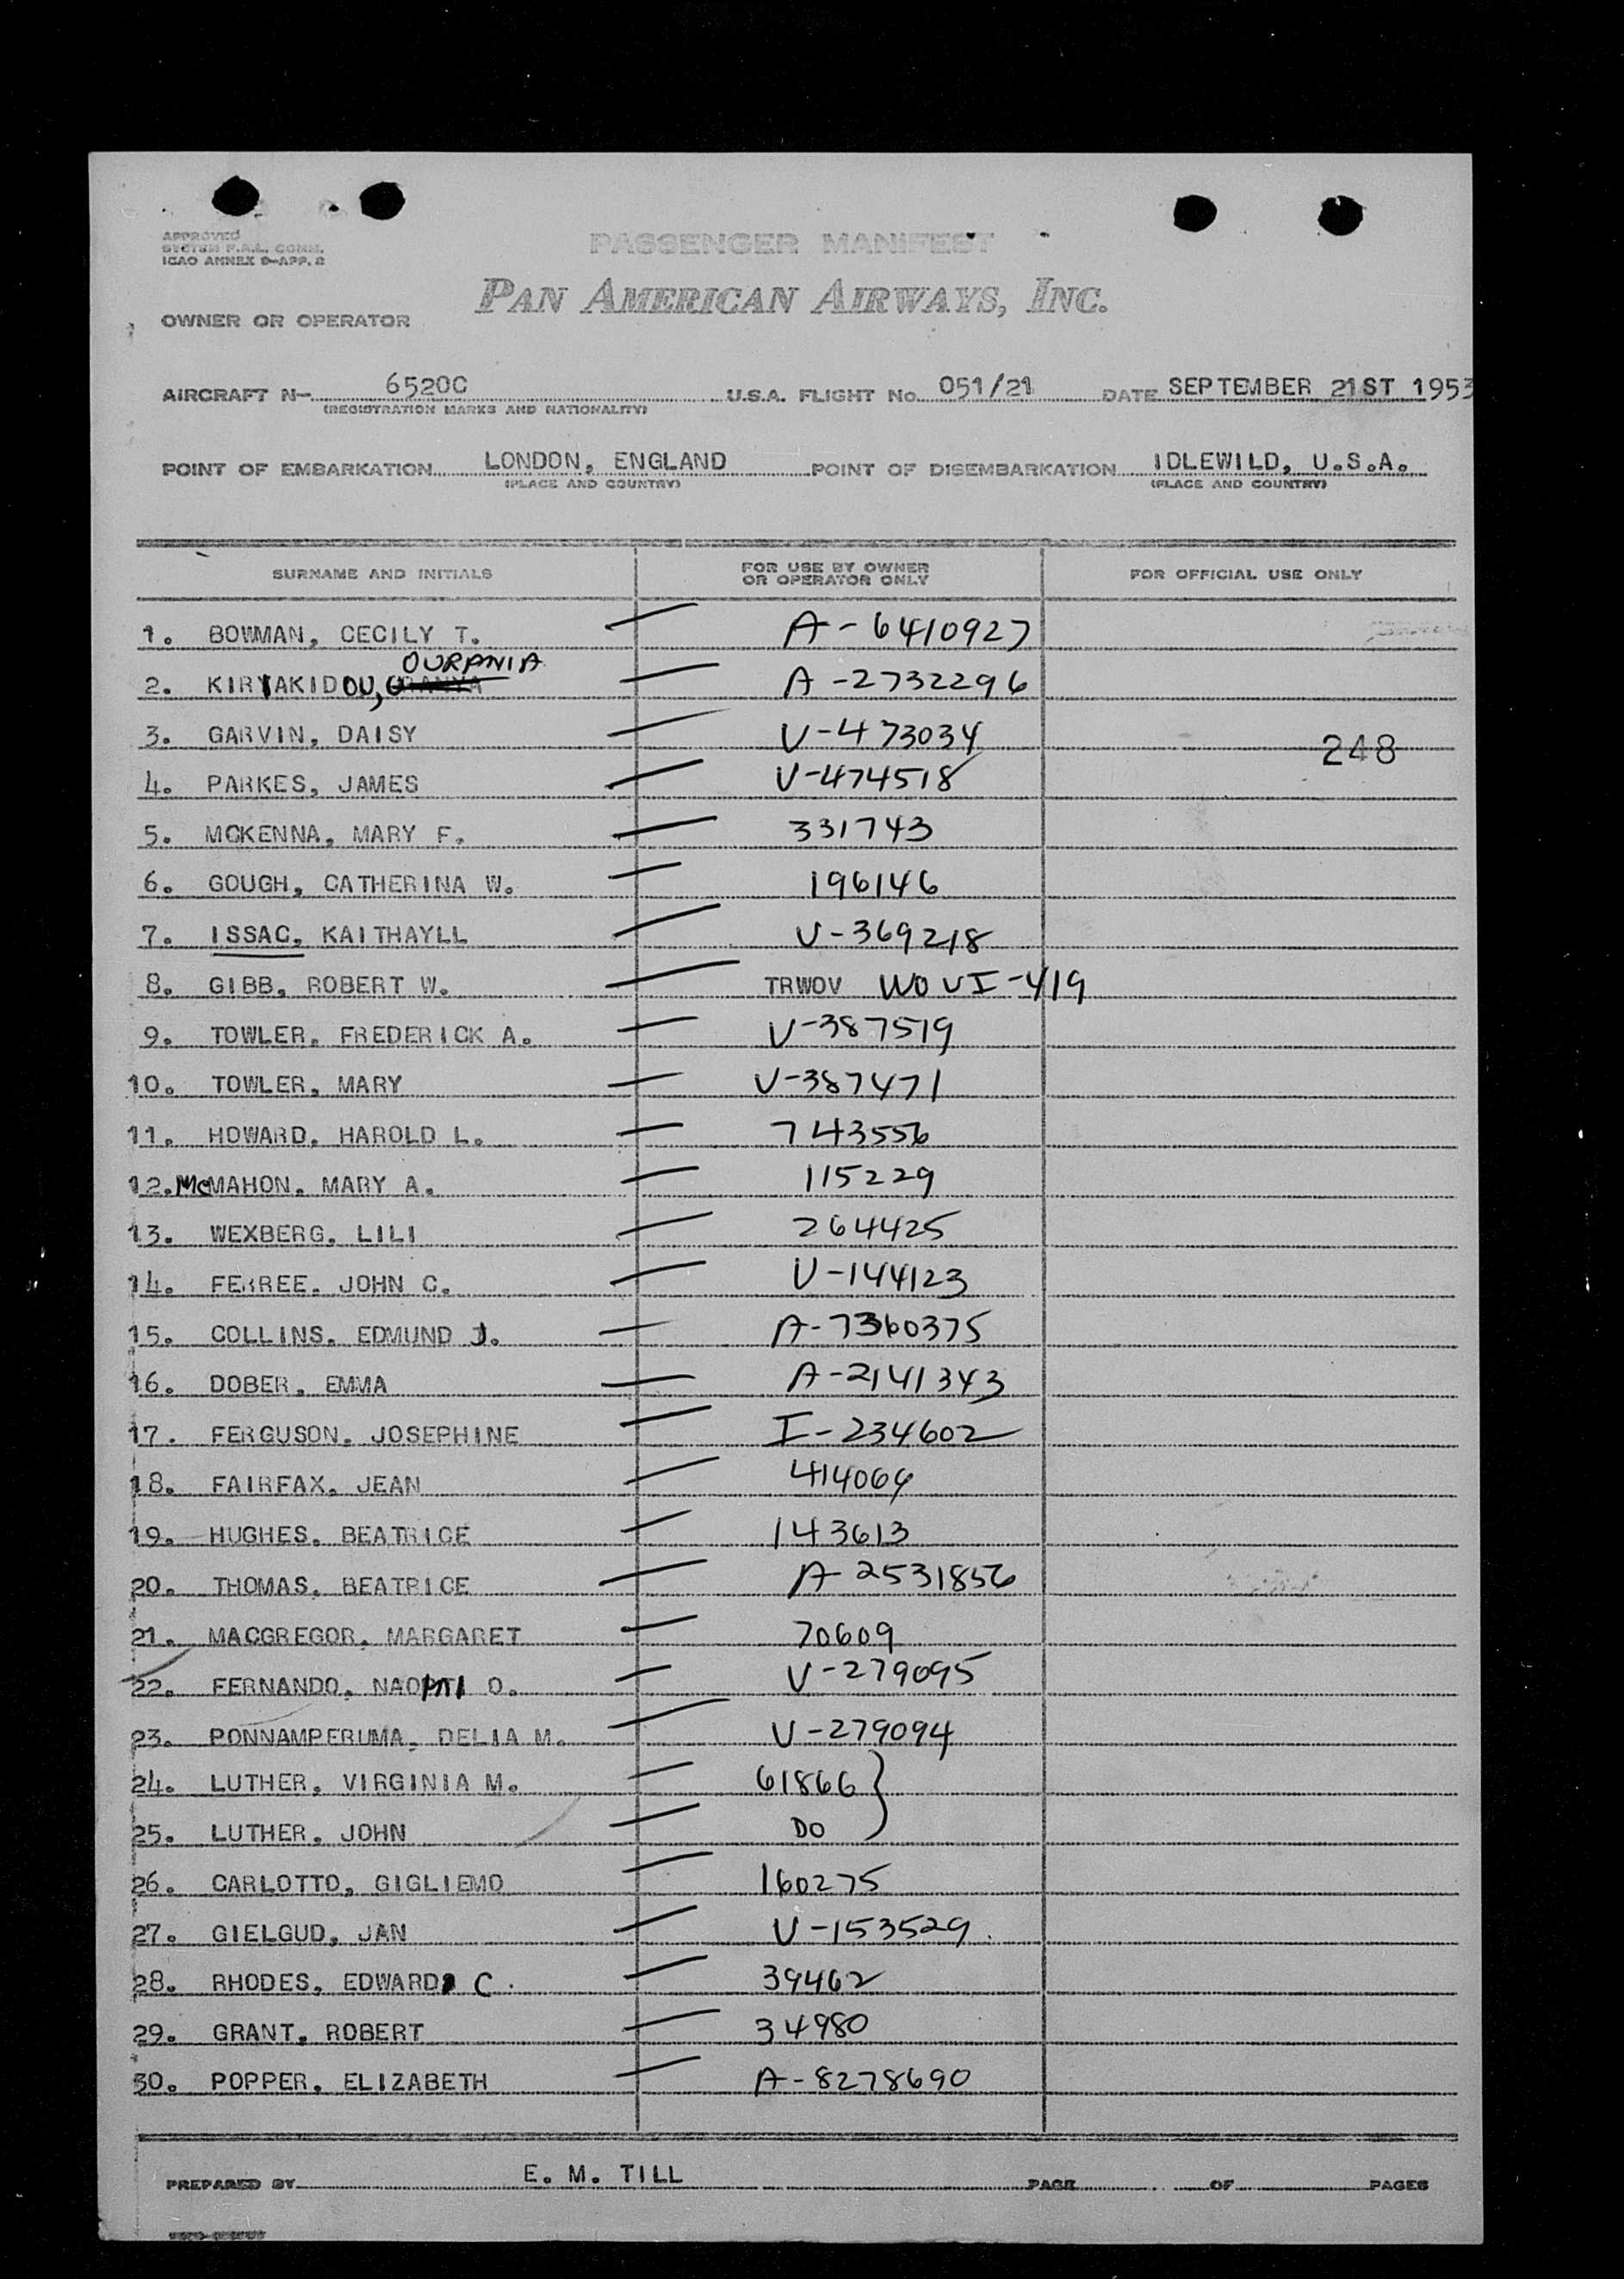 APPROVED
SYSTEM F.A.L. COMM.
ICAO ANNEX 9-APP. 2
PASSENGER MANIFEST
PAN AMERICAN AIRWAYS, INC.
OWNER OR OPERATOR
AIRCRAFT N- 6520C U.S.A. FLIGHT No. 051/21 DATE SEPTEMBER 21ST 1953
(REGISTRATION MARKS AND NATIONALITY)
POINT OF EMBARKATION LONDON, ENGLAND POINT OF DISEMBARKATION IDLEWILD, U.S.A.
(PLACE AND COUNTRY) (PLACE AND COUNTRY)
SURNAME AND INITIALS FOR USE BY OWNER OR OPERATOR ONLY FOR OFFICIAL USE ONLY
1. BOWMAN, CECILY T. A-6410927
OURANIA
2. KIRYAKIDOU, A-2732296
3. GARVIN, DAISY V-473034
248
4. PARKES, JAMES V-474518
5. MCKENNA, MARY F. 331743
6. GOUGH, CATHERINA W. 196146
7. ISSAC, KAITHAYLL V-369218
8. GIBB, ROBERT W. TRWOV WOVI-419
9. TOWLER, FREDERICK A. V-387519
10. TOWLER, MARY V-387471
11. HOWARD, HAROLD L. 743556
12. McMAHON, MARY A. 115229
13. WEXBERG, LILI 264425
14. FERREE, JOHN C. V-144123
15. COLLINS, EDMUND J. A-7360375
16. DOBER, EMMA A-2141343
17. FERGUSON, JOSEPHINE I-234602
18. FAIRFAX, JEAN 414064
19. HUGHES, BEATRICE 143613
20. THOMAS, BEATRICE A-2531856
21. MACGREGOR, MARGARET 70609
22. FERNANDO, NAOMI O. V-279095
23. PONNAMPERUMA, DELIA M. V-279094
24. LUTHER, VIRGINIA M. 61866
25. LUTHER, JOHN DO
26. CARLOTTO, GIGLIEMO 160275
27. GIELGUD, JAN V-153529
28. RHODES, EDWARD C. 39462
29. GRANT, ROBERT 34980
30. POPPER, ELIZABETH A-8278690
PREPARED BY E. M. TILL PAGE OF PAGES